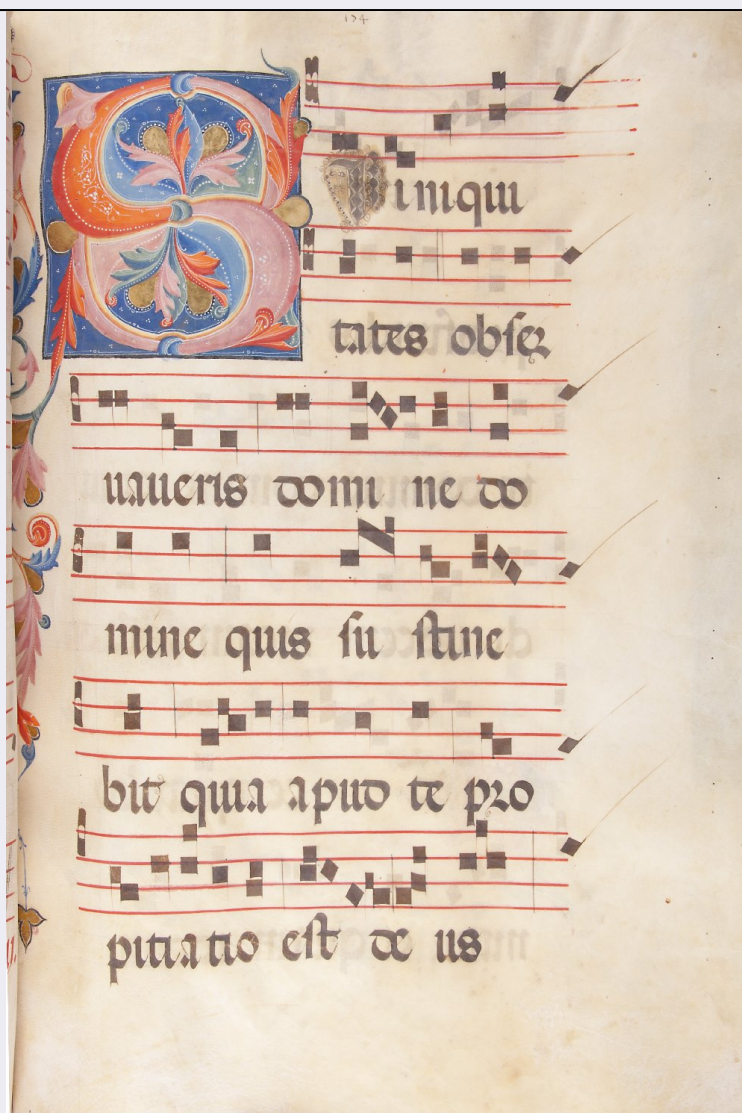 134
SI iniqui
tates obseq
uaueris domi ne do
mine quis su stine
bit quia apud te pro
pitiatio est de us